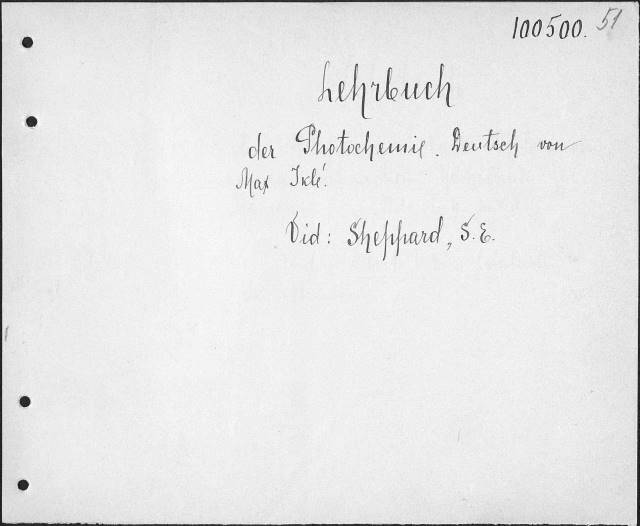 100500. 51
Lehrbuch
der Photochemie. Deutsch von
Max Iklé.
Vid: Sheppard, S. E.